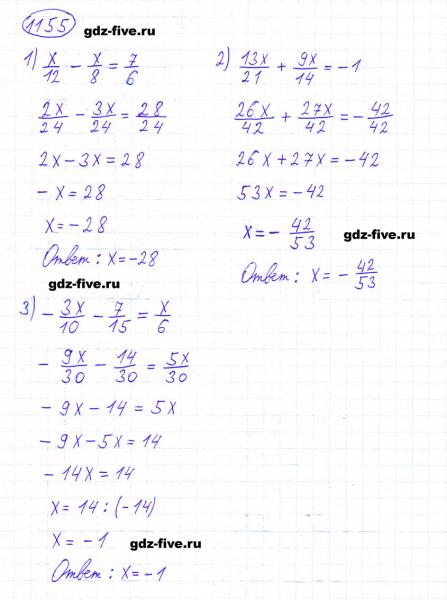 1155 gdz-five.ru
1) x/12 - x/8 = 7/6
2x/24 - 3x/24 = 28/24
2x - 3x = 28
- x = 28
x = -28
Ответ: x = -28
gdz-five.ru
2) 13x/21 + 9x/14 = -1
26x/42 + 27x/42 = - 42/42
26x + 27x = -42
53x = -42
x = - 42/53
gdz-five.ru
Ответ: x = - 42/53
3) - 3x/10 - 7/15 = x/6
- 9x/30 - 14/30 = 5x/30
- 9x - 14 = 5x
- 9x - 5x = 14
- 14x = 14
x = 14 : (-14)
x = -1
gdz-five.ru
Ответ: x = -1